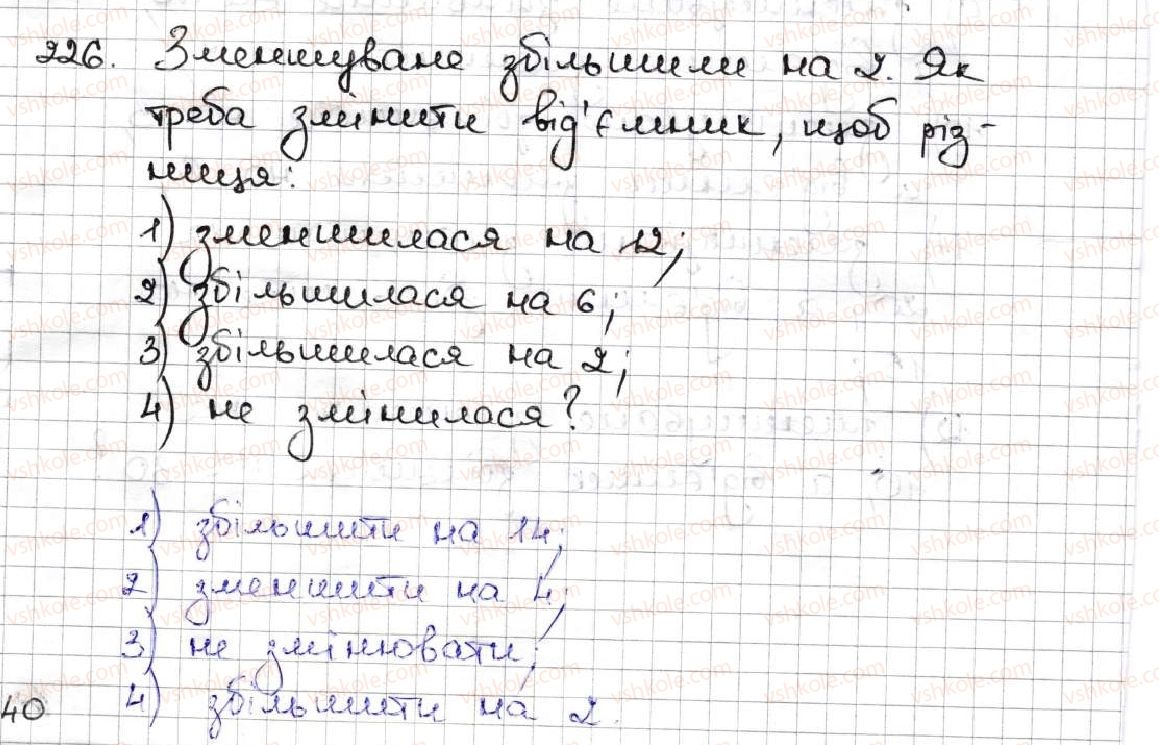 226. Зменшуване збільшили на 2. Як
треба змінити від'ємник, щоб різ-
ниця:
1) зменшилася на 12;
2) збільшилася на 6;
3) збільшилася на 2;
4) не змінилася?
1) збільшити на 14;
2) зменшити на 4;
3) не змінювати;
4) збільшити на 2.
40